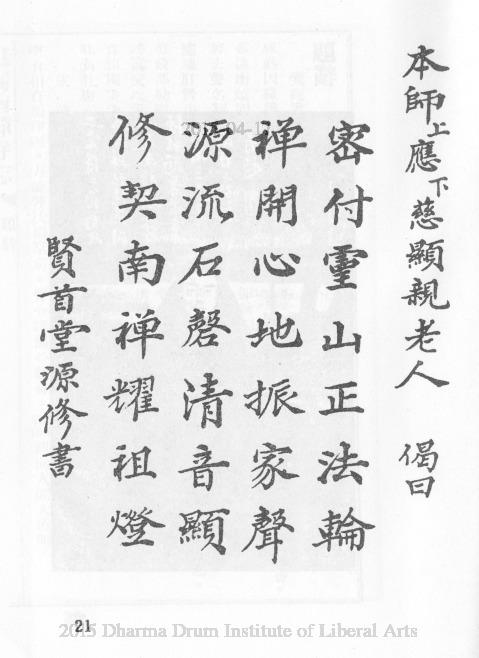 本師上應下慈顯親老人 偈曰
密付靈山正法輪
禅開心地振家聲
源流石磬清音顯
修契南禅耀祖燈
賢首堂源修書
21
2015 Dharma Drum Institute of Liberal Arts